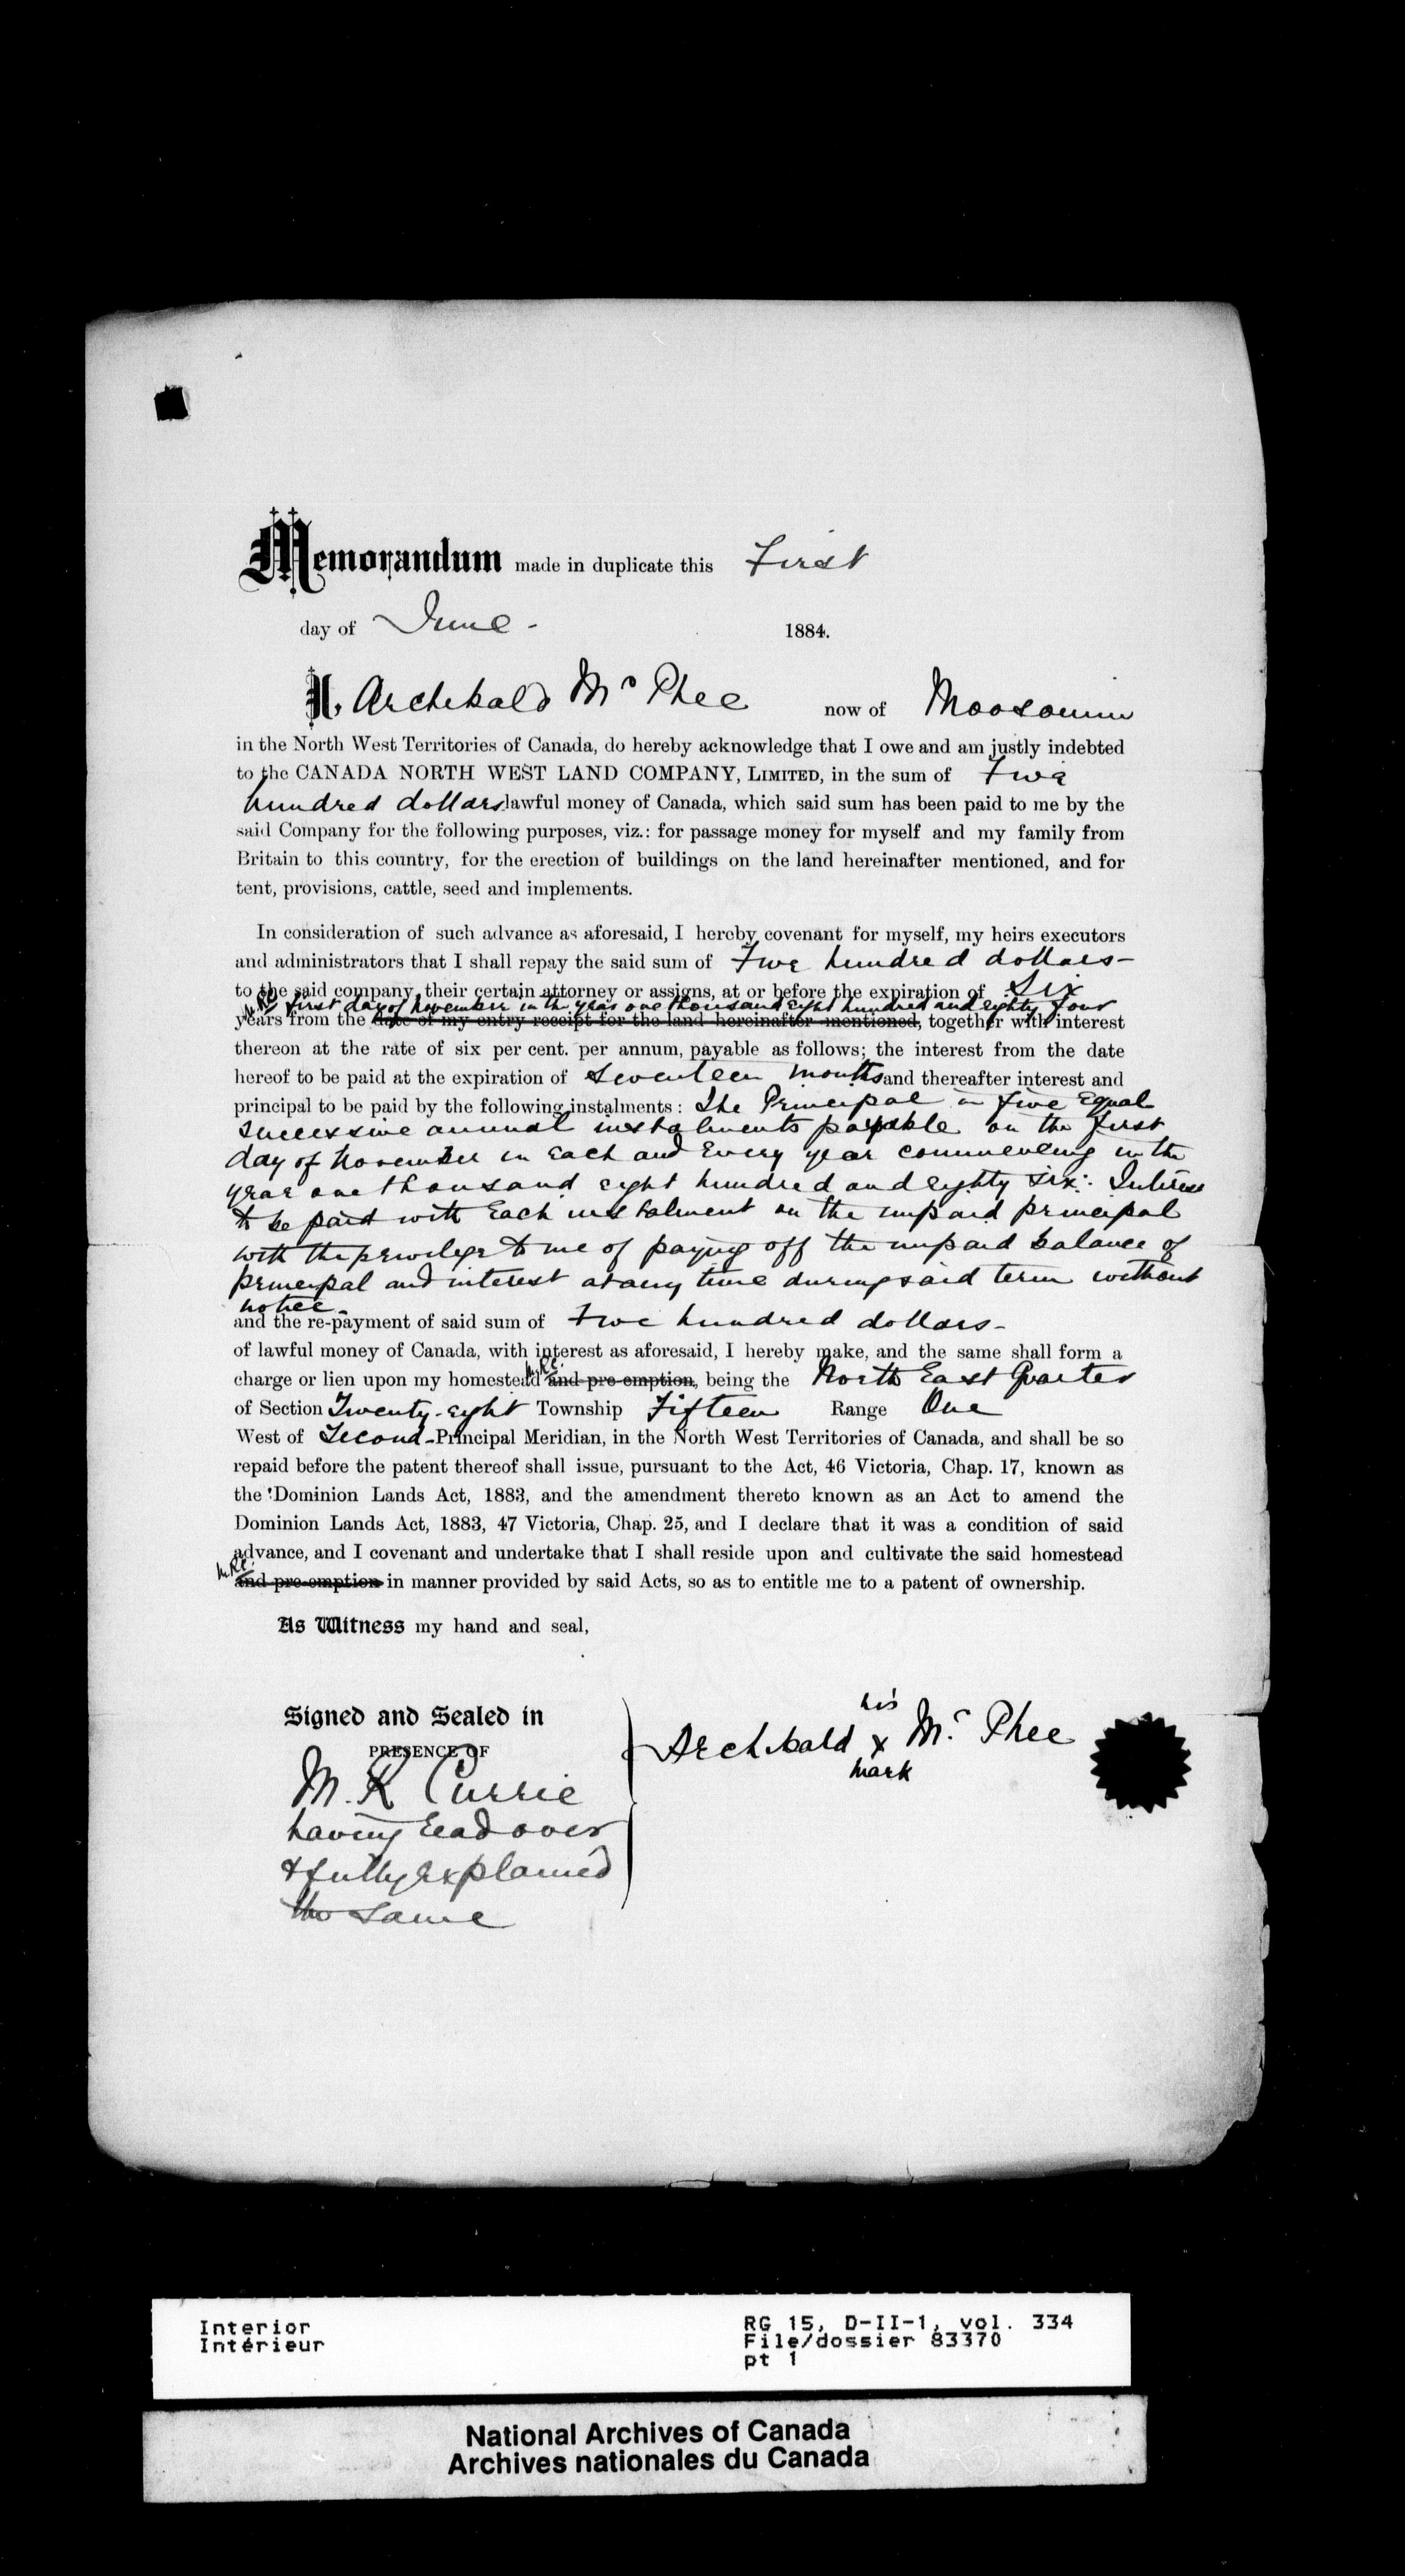 Memorandum made in duplicate this First
day of June - 1884.
I, Archibald Mc Phee now of Moosomin
in the North West Territories of Canada, do hereby acknowledge that I owe and am justly indebted
to the CANADA NORTH WEST LAND COMPANY, LIMITED, in the sum of Two
hundred dollars lawful money of Canada, which said sum has been paid to me by the
said Company for the following purposes, viz.: for passage money for myself and my family from
Britain to this country, for the erection of buildings on the land hereinafter mentioned, and for
tent, provisions, cattle, seed and implements.
In consideration of such advance as aforesaid, I hereby covenant for myself, my heirs executors
and administrators that I shall repay the said sum of Two hundred dollars-
to the said company, their certain attorney or assigns, at or before the expiration of Six
first day of November in the year one thousand eight hundred and eighty four
years from the date of my entry receipt for the land hereinafter mentioned, together with interest
thereon at the rate of six per cent. per annum, payable as follows; the interest from the date
hereof to be paid at the expiration of seventeen months and thereafter interest and
principal to be paid by the following instalments: The Principal in five Equal
successive annual instalments payable on the first
day of November in Each and Every year commencing in the
year one thousand eight hundred and eighty six: Interest
to be paid with Each instalment on the unpaid principal
with the privilege to me of paying off the unpaid balance of
principal and interest at any time during said term without
notice-
and the re-payment of said sum of two hundred dollars-
of lawful money of Canada, with interest as aforesaid, I hereby make, and the same shall form a
charge or lien upon my homestead and pre-emption, being the North East Quarter
of Section Twenty-eight Township Fifteen Range One
West of Second-Principal Meridian, in the North West Territories of Canada, and shall be so
repaid before the patent thereof shall issue, pursuant to the Act, 46 Victoria, Chap. 17, known as
the 'Dominion Lands Act, 1883, and the amendment thereto known as an Act to amend the
Dominion Lands Act, 1883, 47 Victoria, Chap. 25, and I declare that it was a condition of said
advance, and I covenant and undertake that I shall reside upon and cultivate the said homestead
and pre-emption in manner provided by said Acts, so as to entitle me to a patent of ownership.
As Witness my hand and seal,
Signed and Sealed in
PRESENCE OF
M. K Currie
having read over
& fully explained
the same
his
Archibald x Mc Phee
mark
Interior
Intérieur
RG 15, D-II-1, vol. 334
File/dossier 83370
pt 1
National Archives of Canada
Archives nationales du Canada